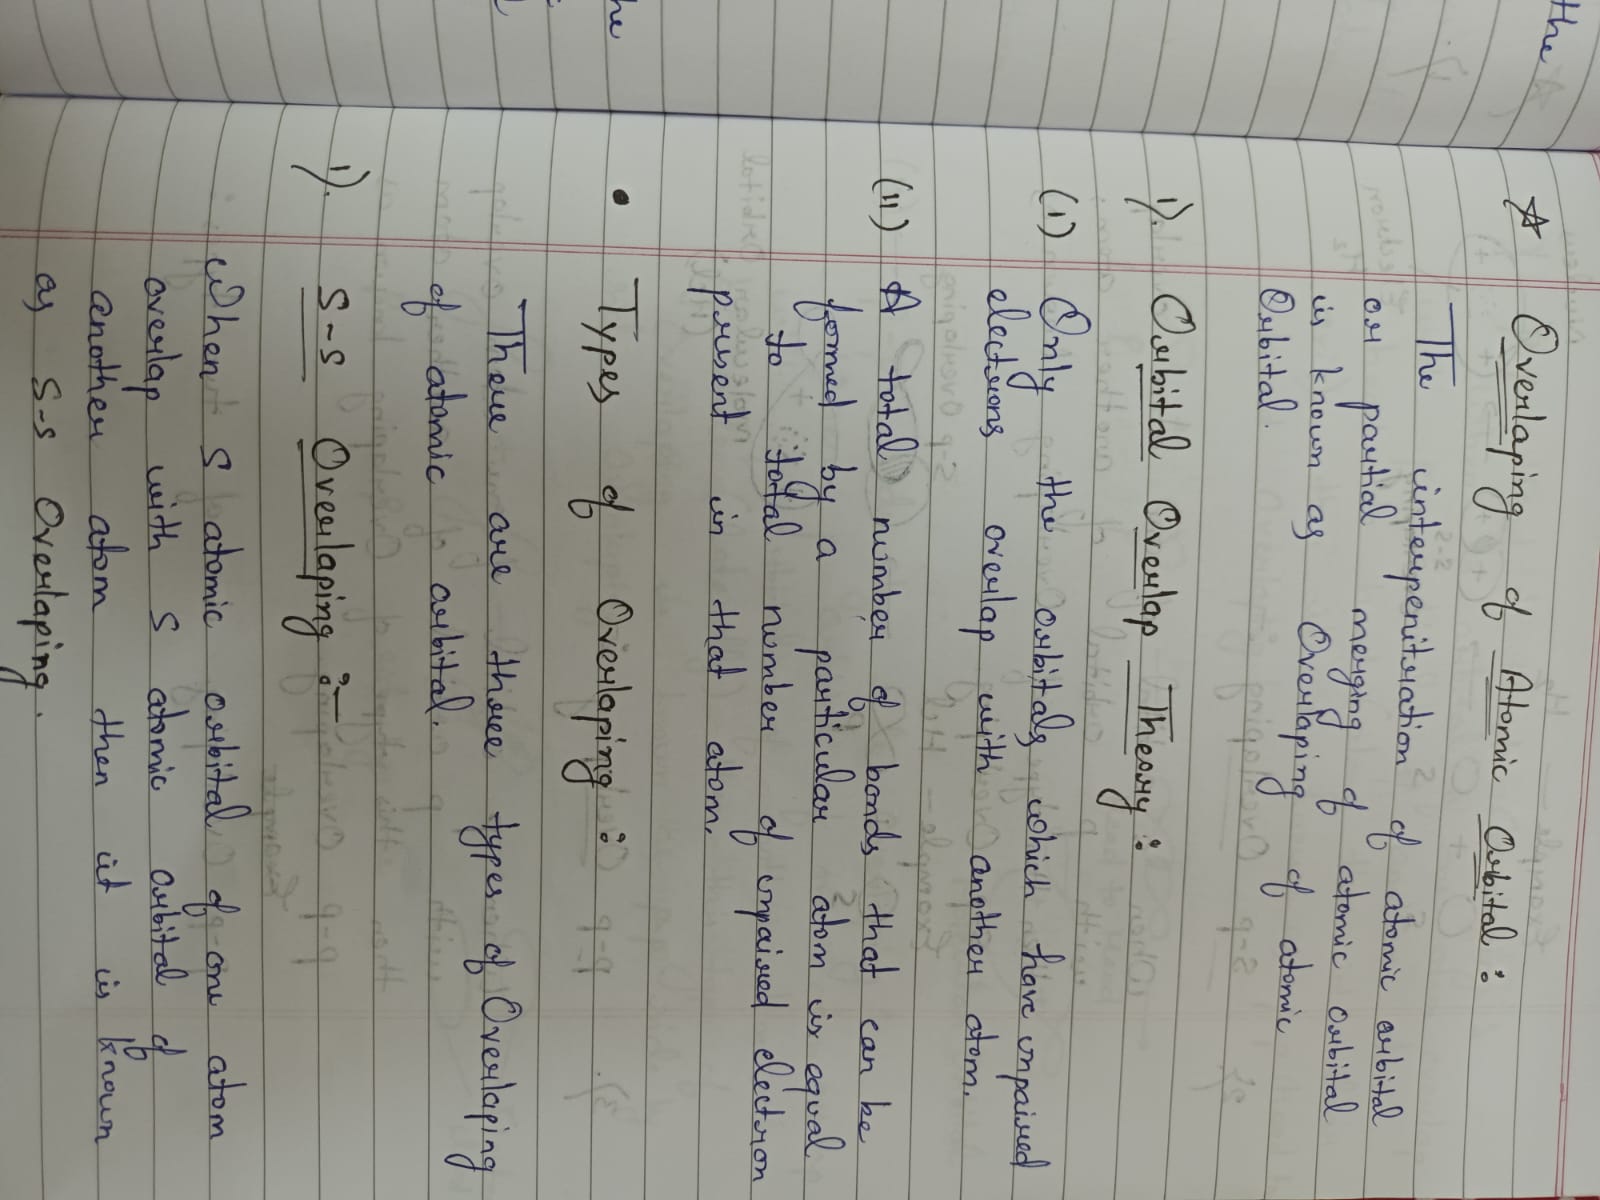 the
☆ Overlaping of Atomic Orbital :
The interpenitration of atomic orbital
or partial merging of atomic orbital
is known as Overlaping of atomic
Orbital.
1). Orbital Overlap Theory :
(I) Only the orbitals which have unpaired
electrons overlap with another atom.
(II) A total number of bonds that can be
formed by a particular atom is equal
to total number of unpaired electron
present in that atom.
he
• Types of Overlaping :
There are three types of Overlaping
of atomic orbital.
1). S-S Overlaping :-
When S atomic orbital of one atom
overlap with S atomic orbital of
another atom then it is known
as S-S Overlaping.